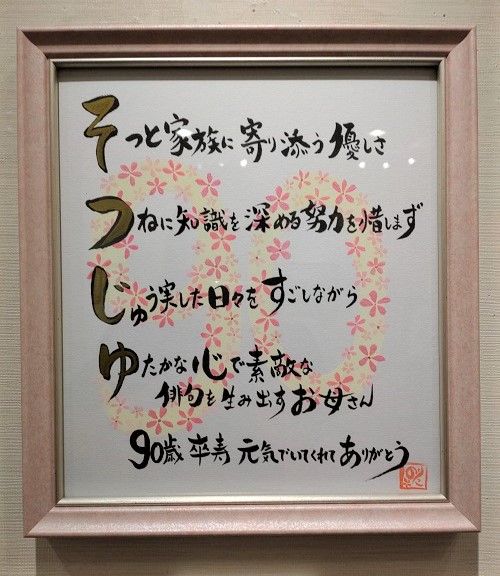 そっと家族に寄り添う優しさ
つねに知識を深める努力を惜しまず
じゅう実した日々をすごしながら
ゆたかな心で素敵な
俳句を生み出すお母さん
90歳 卒寿 元気でいてくれてありがとう